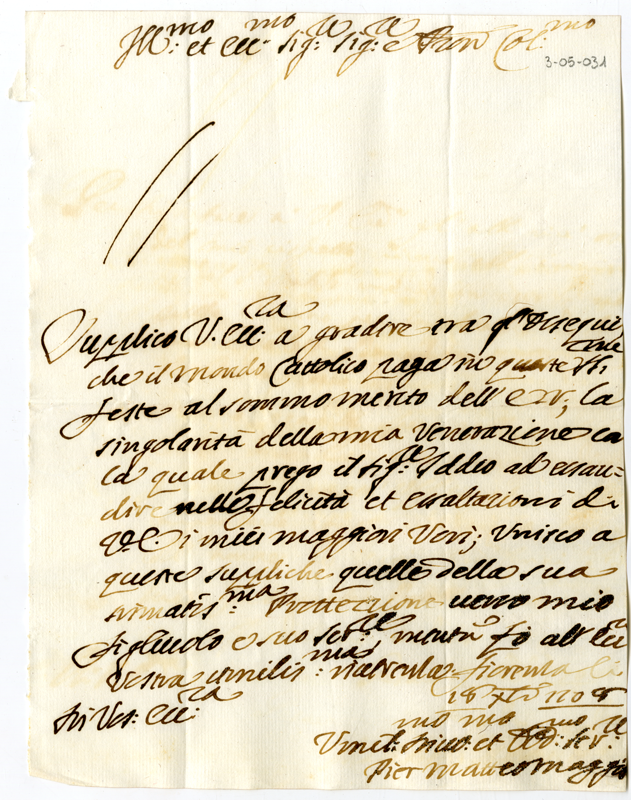 Ill:mo et ecc:mo Sig:re Sig:re e Pron Col:mo
3-05-031
Supplico V. ecc:za a gradire tra gl'ossequi
che il mondo Cattolico paga in queste SS.me
feste al sommo merito dell' la
singolarità della mia venerazione co
la quale prego il Sig:re Iddio ad esau-
dire nelle felicità et essaltazioni di
i miei maggiori Voti; Unisco a
queste suppliche quelle della sua
stimatis:ma Protterzione verso mio
figliuolo e suo ser:re mentre fo all' ecc:za
Vostra umilis:ma riverenza fiorenza li
18 xbre
Di Vos: ecc:za
Umil:mo et Obb:mo ser:re
Pier Matteo Maggio